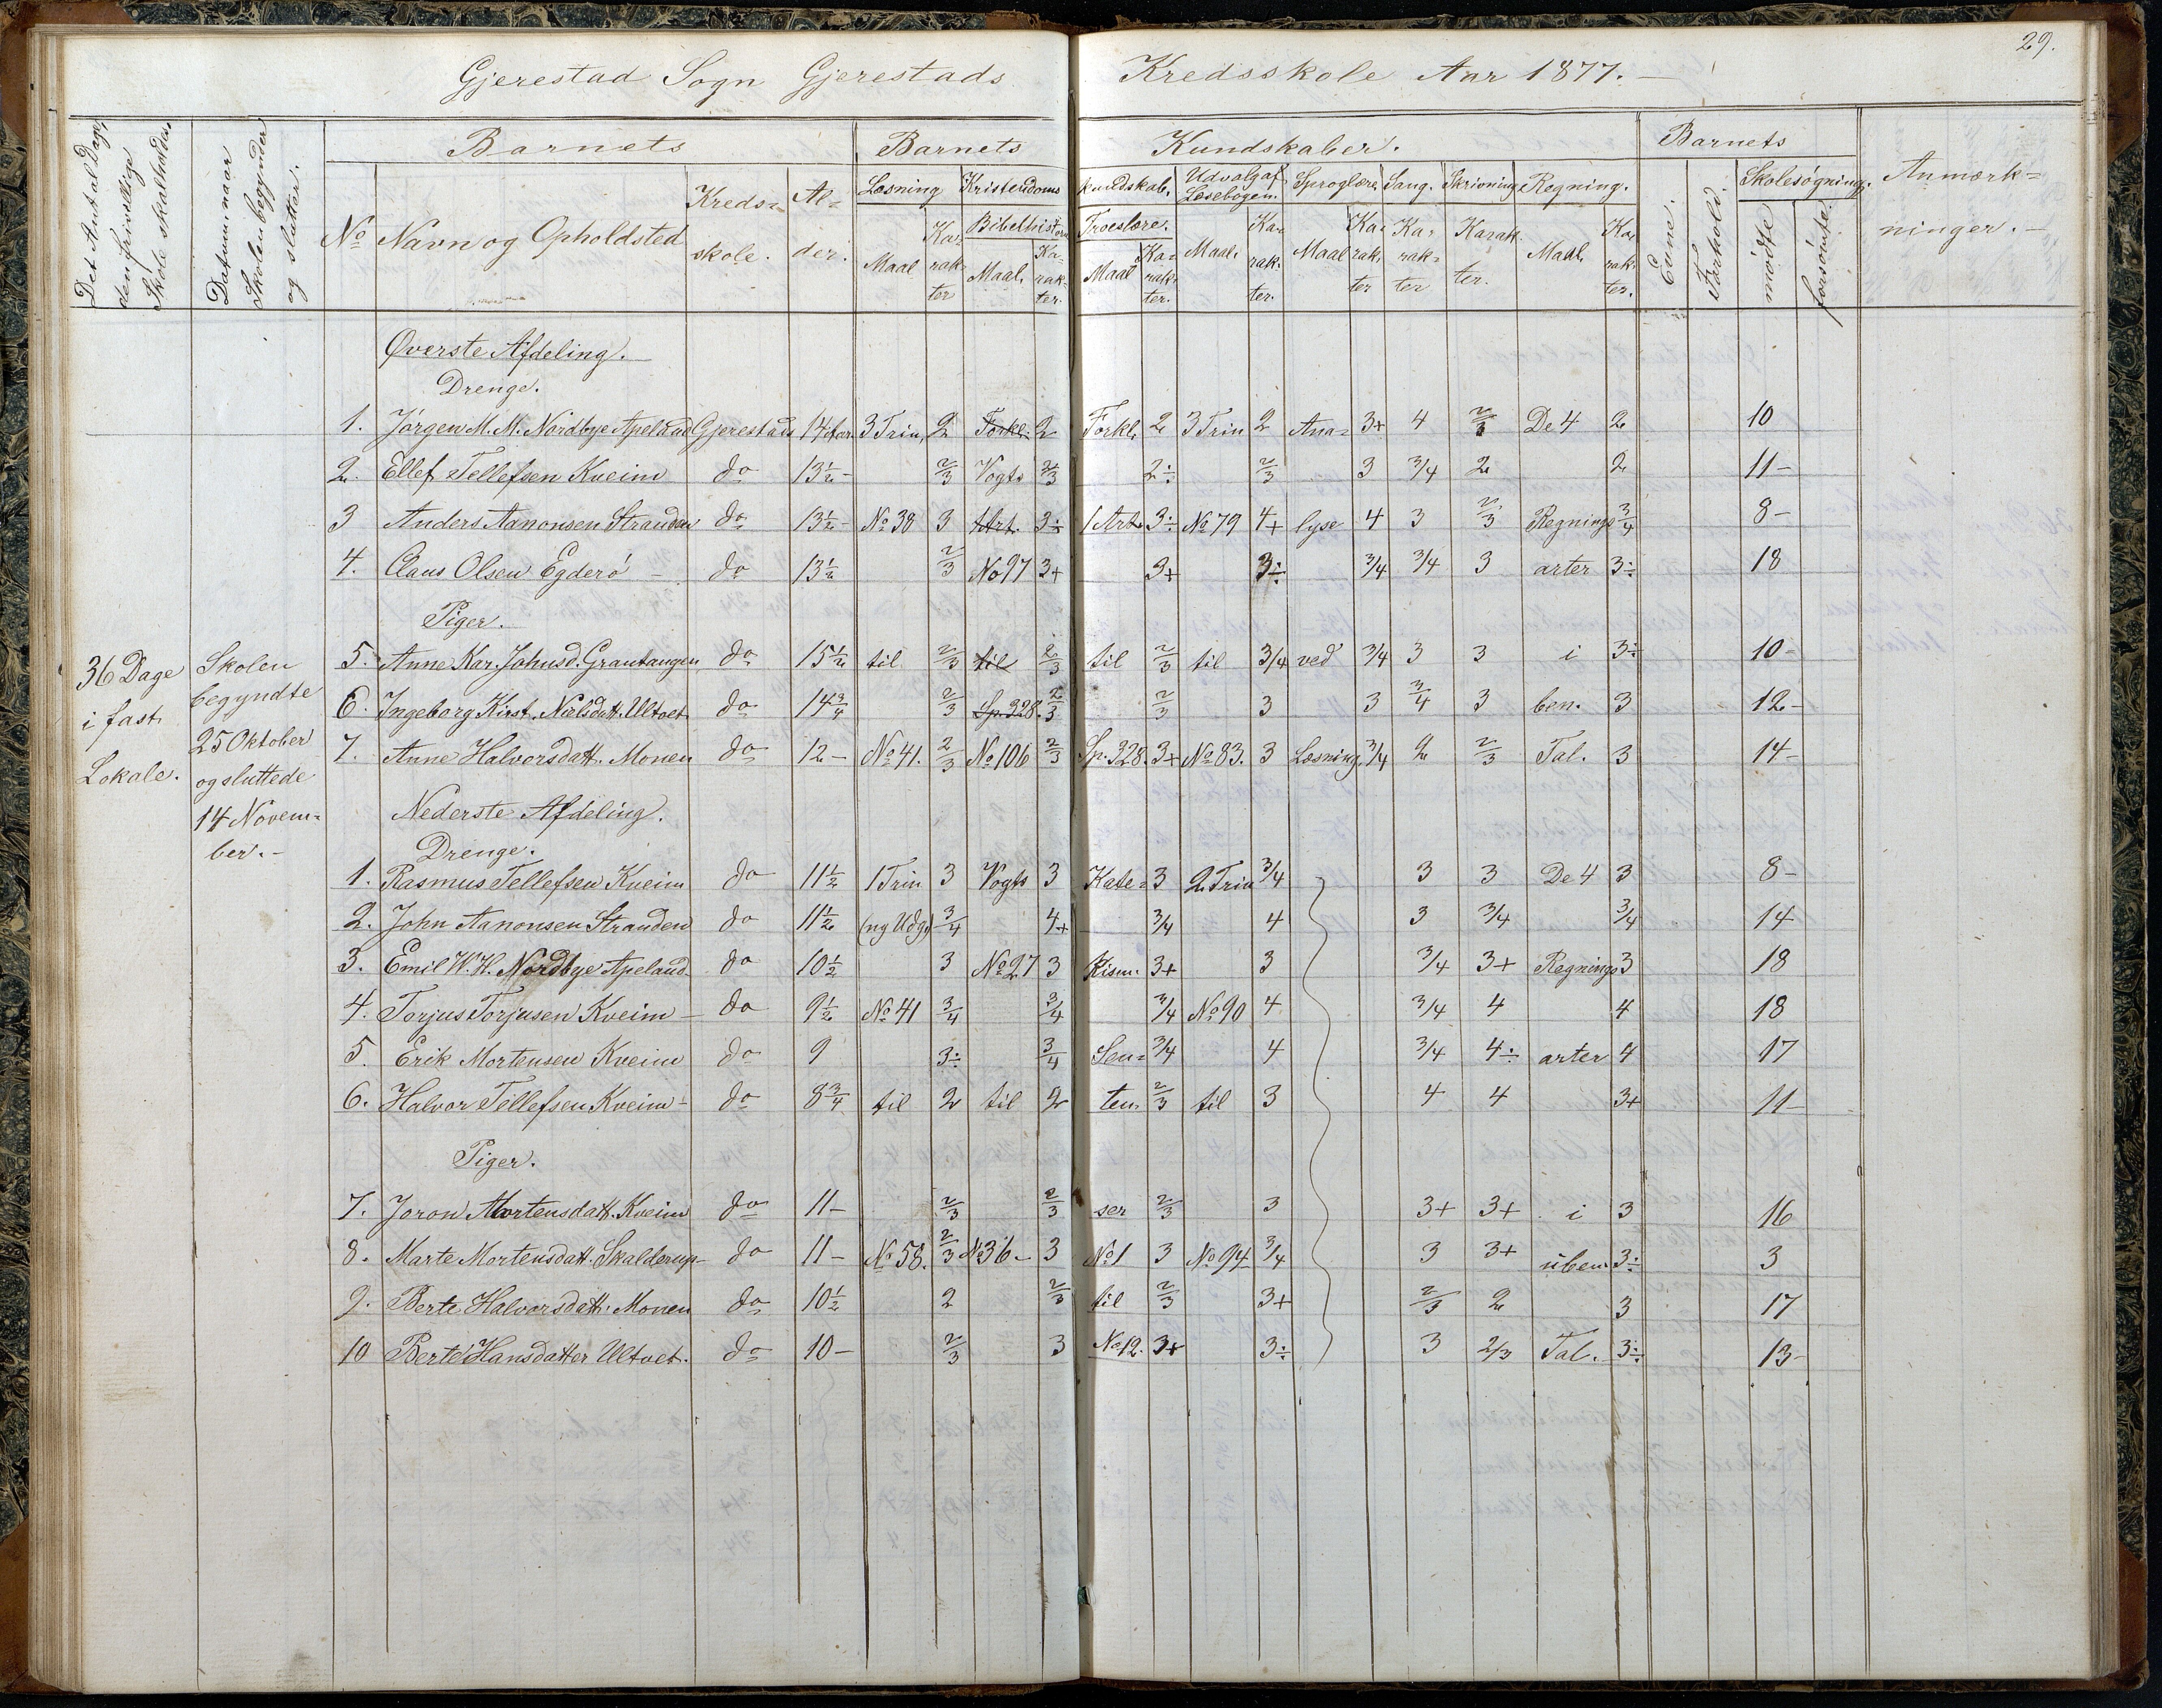 29.
Gjerestad Sogn Gjerestads Kredsskole Aar 1877.
Det Antal Dage, den frivillige Skole skal holdes,
Datum naar Skolen begynder og slutter.
Barnets Barnets Kundskaber. Barnets Anmærk=
ninger.
No Navn og Opholdsted Kreds= skole. Al= der.
Læsning Kristendoms kundskab. Udvalg af Læsebogen. Sproglære Sang. Skrivning Regning. Evne. Forhold. Skolesøgning.
Maal Karakter Bibelhistorie Maal. Karakter. Troeslære. Maal Karakter. Maal. Karakter. Maal Karakter Karakter Karakter. Maal. Karakter. mødte forsømte.
Øverste Afdeling.
Drenge.
1. Jörgen M. M. Nordbye Apeland Gjerestads 14 Aar 3 Trin 2 Forkl. 2 Forkl. 2 3 Trin 2 Ana= 3+ 4 2/3 De 4 2 10
2. Ellef Tellefsen Kveim do 13½ - 2/3 Vogts 2/3 2÷ 2/3 3 3/4 2 2 11 -
3 Anders Aanonsen Stranden do 13½ - No 38 3 1 Art. 3÷ 1 Art. 3÷ No 79 4+ lyse 4 3 2/3 Regnings 3/4 8 -
4. Claus Olsen Egderö - do 13½ 2/3 No 97 3+ 3+ 3÷ 3/4 3/4 3 arter 3÷ 18
Piger.
36 Dage i fast Lokale.
Skolen begyndte 25 Oktober og sluttede 14 Novem= ber. -
5. Anne Kar. Johnsd. Grautangen do 15½ til 2/3 til 2/3 til 2/3 til 3/4 ved 3/4 3 3 i 3÷ 10 -
6. Ingeborg Kirst. Nielsdatt. Ultvet do 14¾ 2/3 Sp. 328. 2/3 2/3 3 3 3/4 3 ben. 3 12 -
7. Anne Halvorsdatt. Monen do 12 - No 41. 2/3 No 106 2/3 Sp. 328. 3+ No 83. 3 Læsning. 3/4 2 2/3 Tal. 3 14 -
Nederste Afdeling.
Drenge.
1. Rasmus Tellefsen Kveim do 11½ 1 Trin 3 Vogts 3 Kate= 3 2 Trin 3/4 3 3 De 4 3 8 -
2. John Aanonsen Stranden do 11½ (ny Udg.) 3/4 4+ 3/4 4 3 3/4 3/4 14
3. Emil W. H. Nordbye Apeland do 10½ 3 No 27 3 kism. 3+ 3 3/4 3+ Regnings 3 18
4. Torjus Torjusen Kveim - do 9½ No 41 3/4 3/4 3/4 No 90 4 3/4 4 4 18
5. Erik Mortensen Kveim do 9 3÷ 3/4 Sen= 3/4 4 3/4 4÷ arter 4 17
6. Halvor Tellefsen Kveim - do 8¾ til 2 til 2 ten. 2/3 til 3 4 4 3+ 11 -
Piger.
7. Joron Mortensdatt. Kveim do 11 - 2/3 2/3 ser 2/3 3 3+ 3+ i 3 16
8. Marte Mortensdatt. Skalderup - do 11 - No 58. 2/3 No 36 - 3 No 1 3 No 94 3/4 3 3+ uben. 3÷ 3
9. Berte Halvorsdatt. Monen do 10½ 2 2/3 til 2/3 3+ 2/3 2 3 17
10 Berte Hansdatter Ultvet. do 10 - 2/3 3 No 12. 3+ 3÷ 3 2/3 Tal. 3÷ 13 -